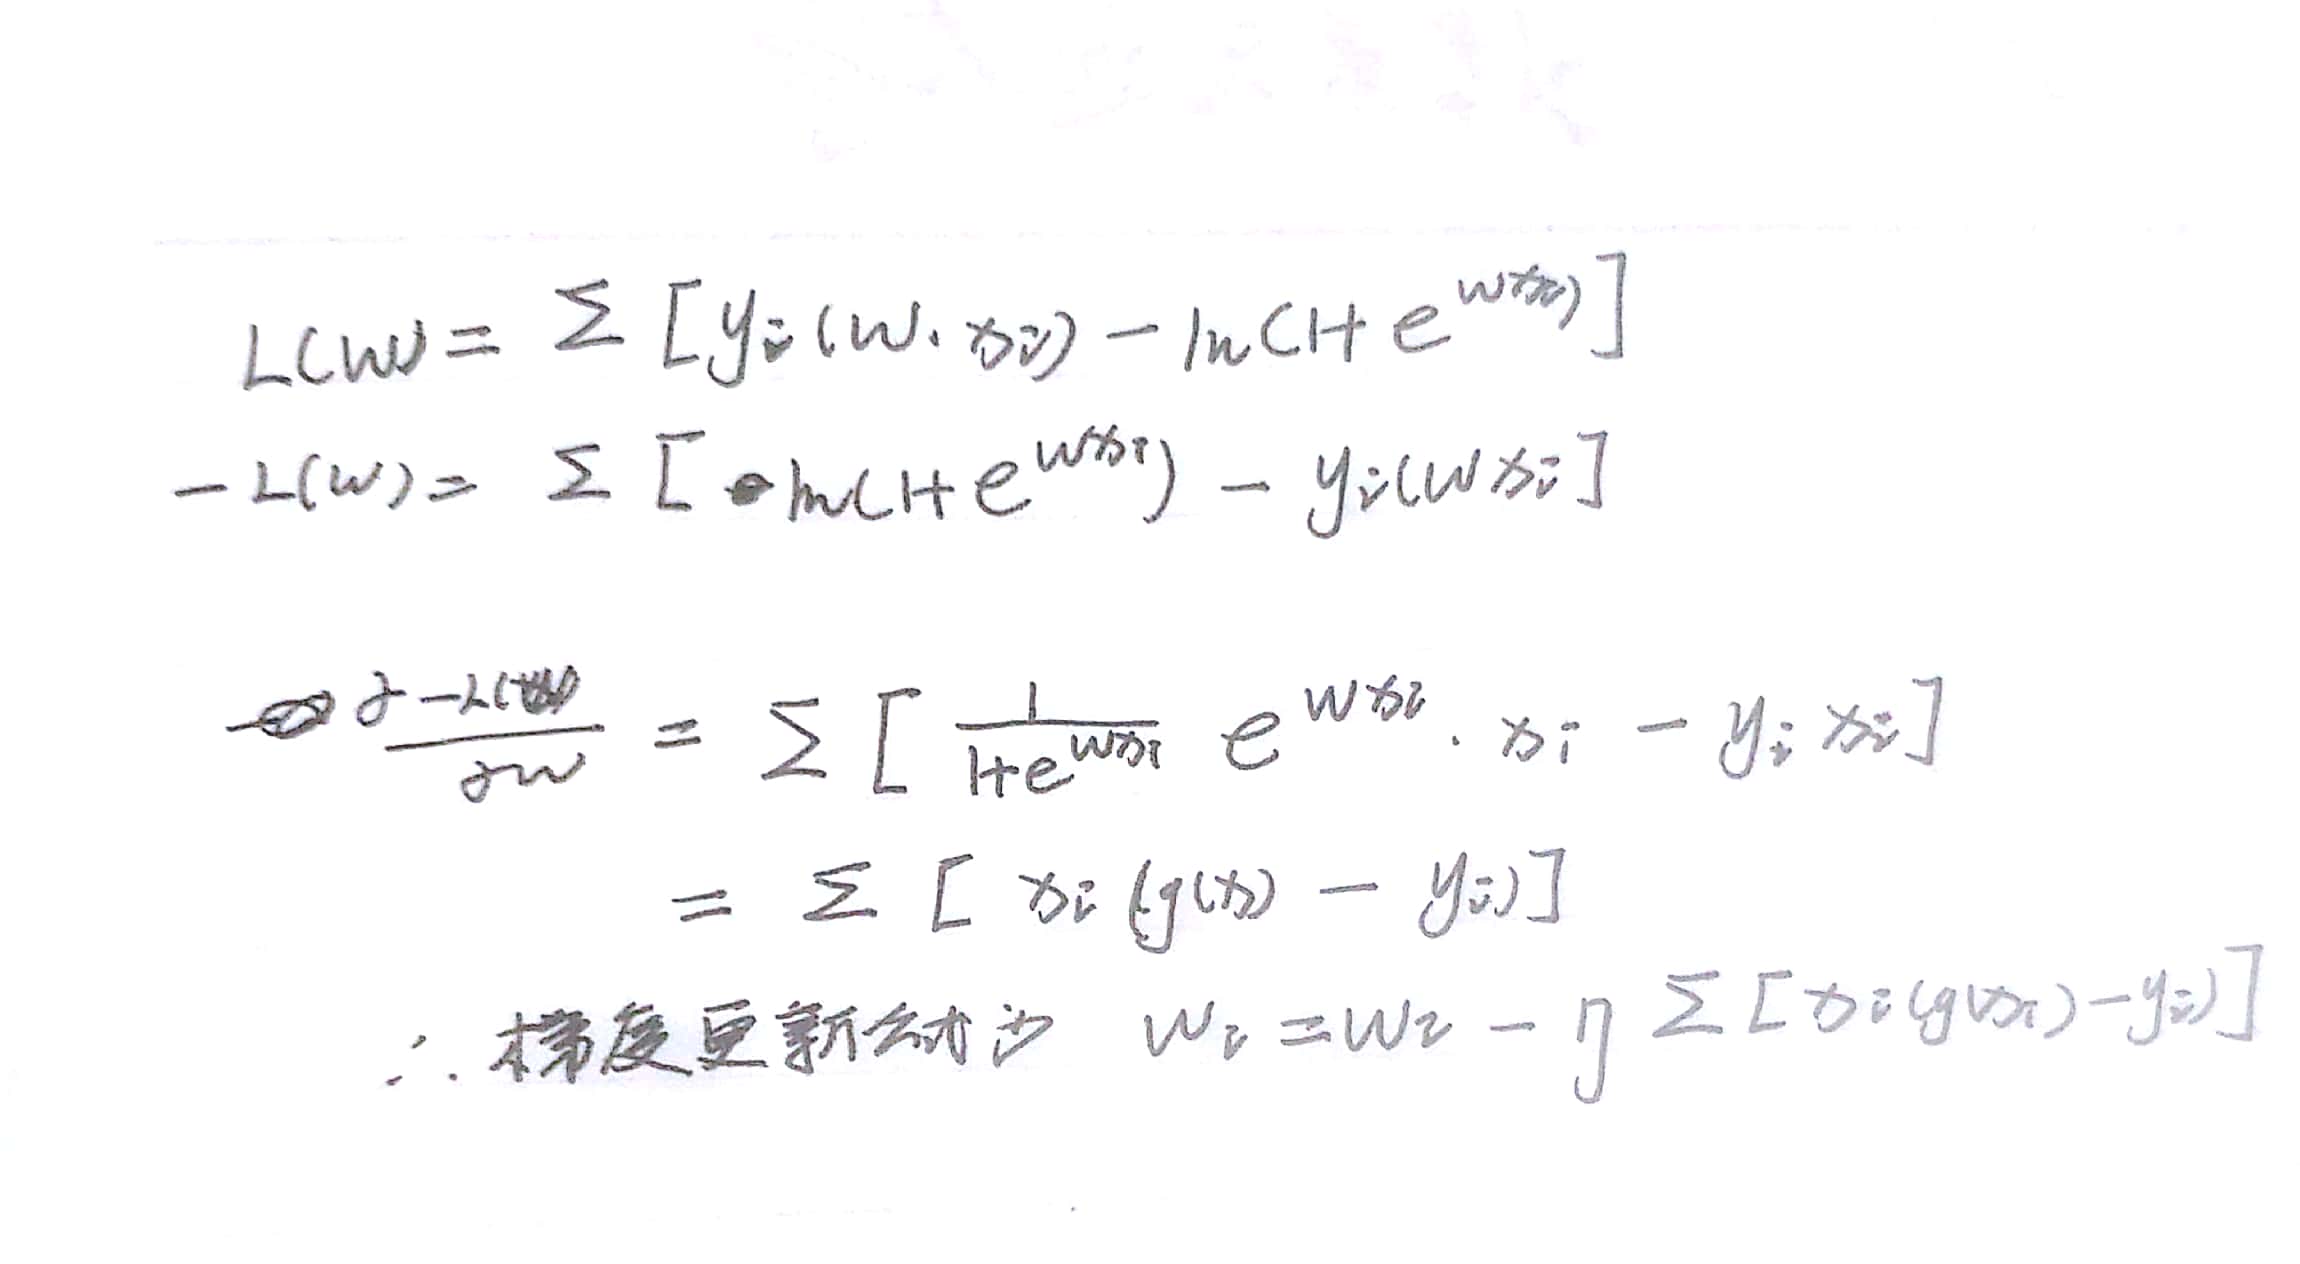 L(w) = Σ [yi(w·xi) - ln(1+e^wxi)]
-L(w) = Σ [ln(1+e^wxi) - yi(wxi]
∂-L(w)/∂w = Σ [1/(1+e^wxi) e^wxi · xi - yi xi]
= Σ [xi(g(x) - yi)]
∴ 梯度更新 wi = wi - η Σ[xi(g(xi)-yi)]